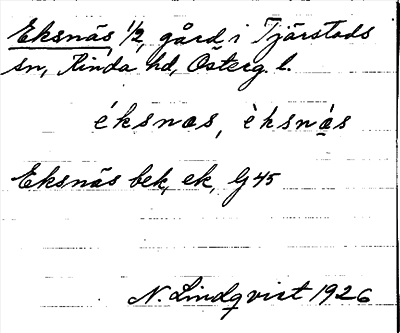 Eksnäs, 1/2, gård i Tjärstads
sn, Kinda hd, Österg. l.
éksnas, èksnàs
Eksnäs bek, ek, G45
N. Lindqvist 1926